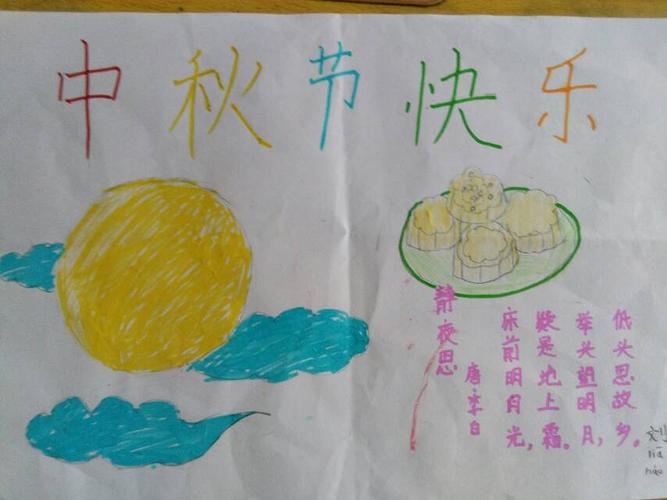 中秋节快乐
静夜思
唐·李白
床前明月光，
疑是地上霜。
举头望明月，
低头思故乡。
刘